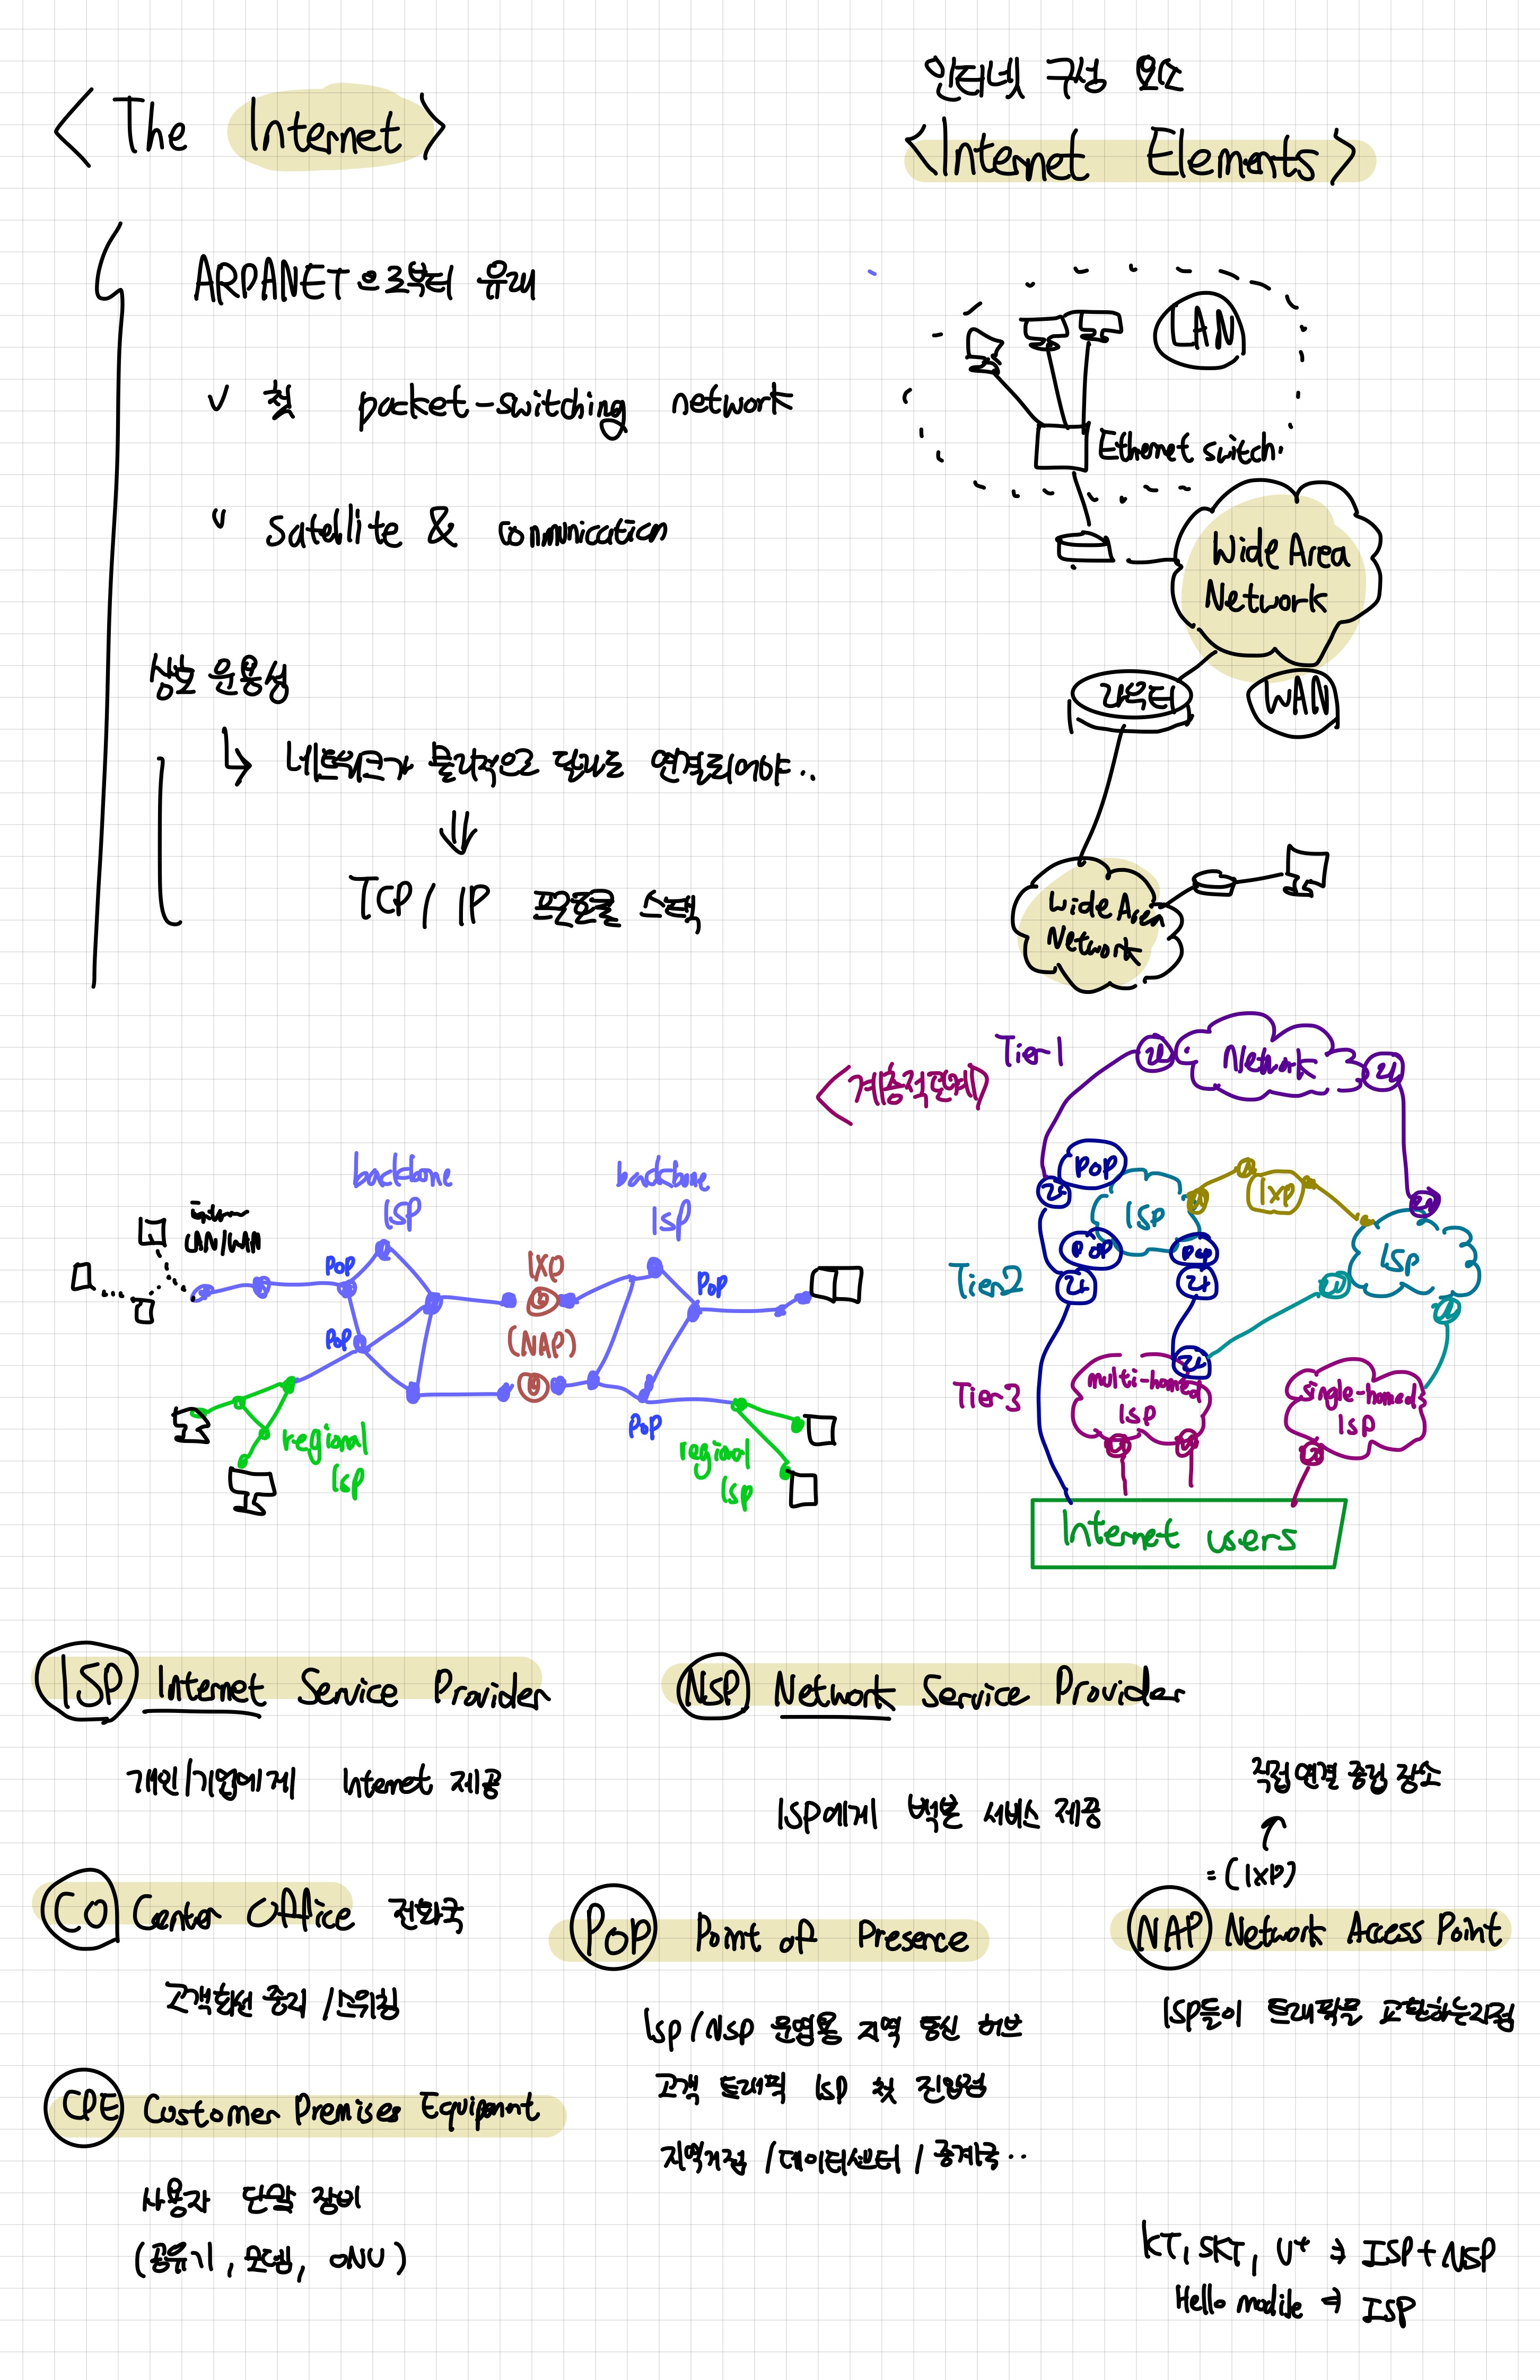 <The Internet>
ARPANET으로부터 유래
✓ 첫 packet-switching network
✓ Satellite & Communication
상호 운용성
↳ 네트워크가 물리적으로 달라도 연결되어야..
⇓
TCP/IP 프로토콜 스택
인터넷 구성 요소
<Internet Elements>
LAN
Ethernet switch.
Wide Area
Network
라우터
WAN
Wide Area
Network
LAN/WAN
backbone
ISP
backbone
ISP
POP
POP
IXP
(NAP)
POP
POP
regional
ISP
regional
ISP
<계층적단계>
Tier-1
라
Network
라
POP
라
ISP
IXP
POP
POP
라
라
ISP
Tier2
라
Tier3
multi-homed
ISP
single-homed
ISP
Internet users
ISP Internet Service Provider
개인/기업에게 Internet 제공
NSP Network Service Provider
ISP에게 백본 서비스 제공
CO Center Office 전화국
고객회선 종리/스위칭
POP Point of Presence
ISP/NSP 운영용 지역 통신 허브
고객 트래픽 ISP 첫 진입점
지역거점/데이터센터/중계국..
직접연결 중립 장소
↑
=(IXP)
NAP Network Access Point
ISP들이 트래픽을 교환하는지점
CPE Customer Premises Equipment
사용자 단말 장비
(공유기, 모뎀, ONU)
KT, SKT, U+ ⇒ ISP+NSP
Hello modile ⇒ ISP